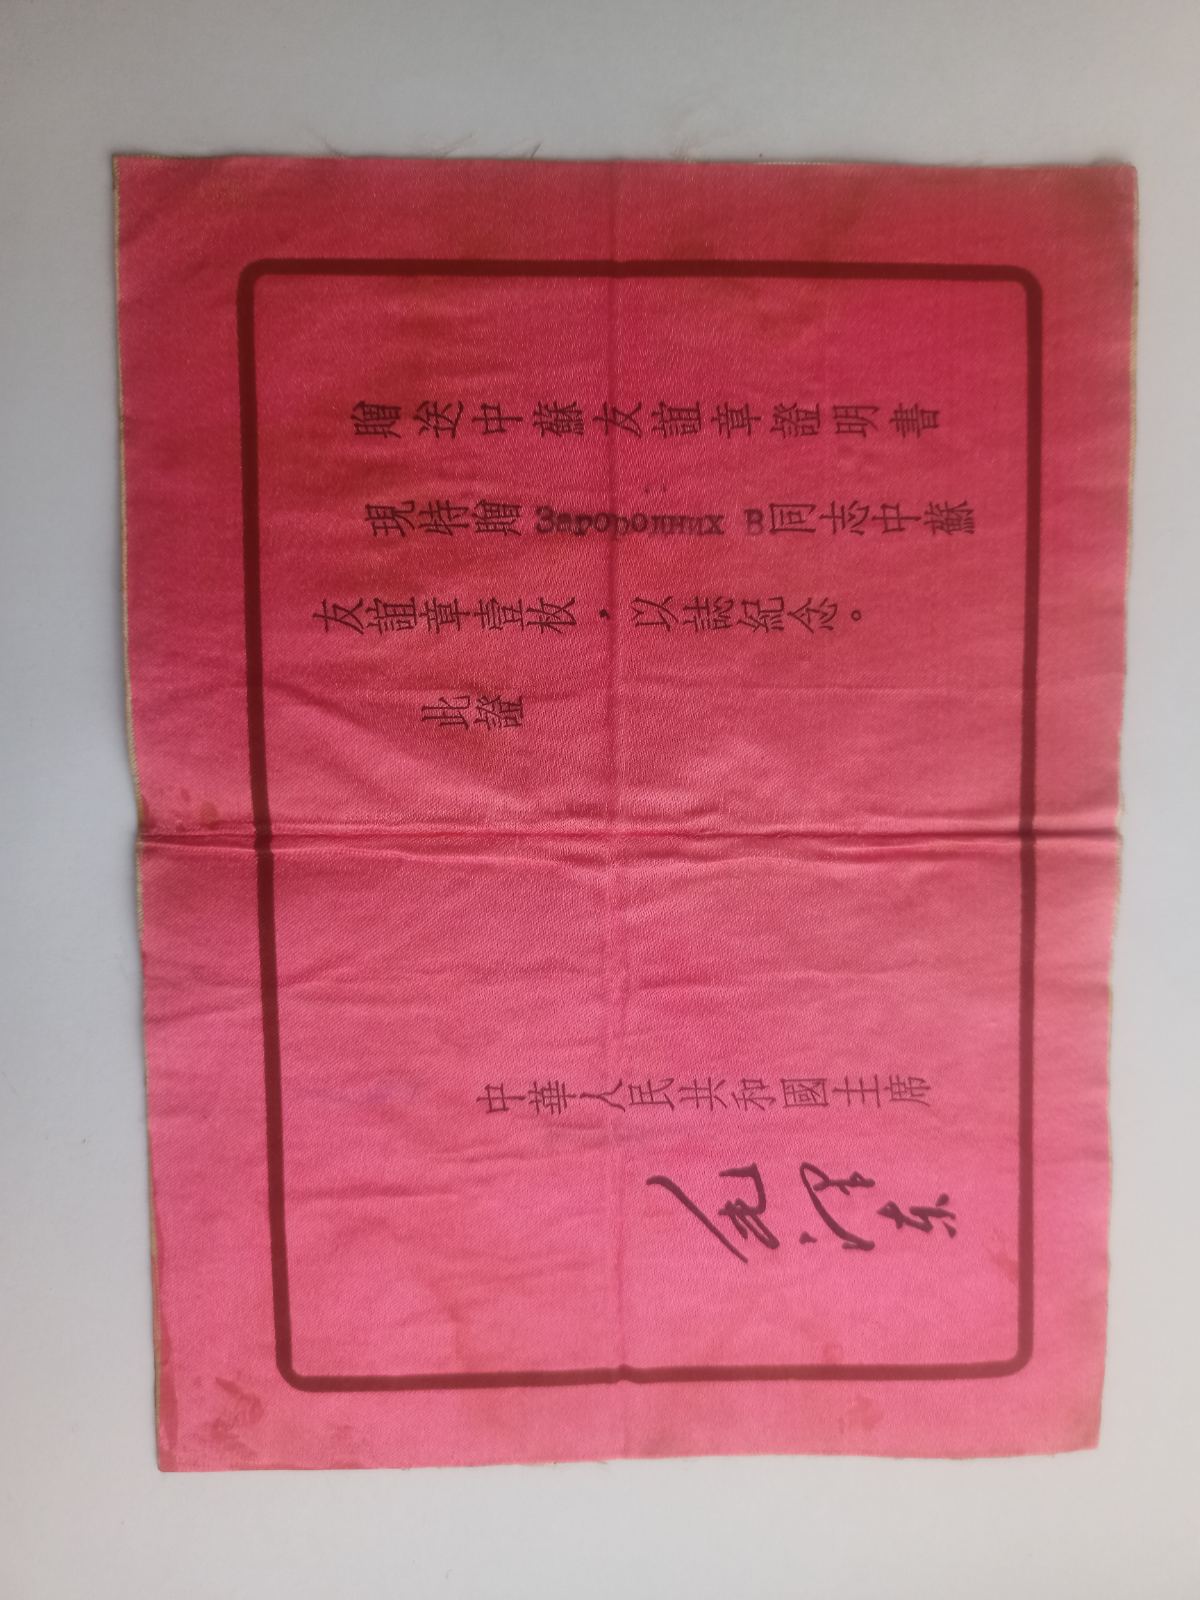 贈送中蘇友誼章證明書
現特贈 Запороlныx в同志中蘇
友誼章壹枚，以誌紀念。
此證
中華人民共和國主席
毛澤东